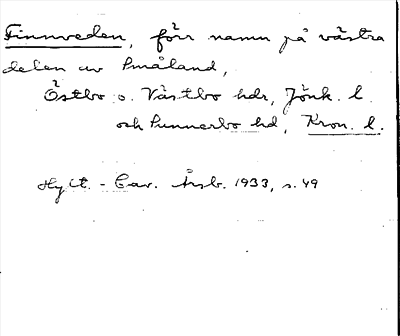 Finnveden, förr namn på västra
delen av Småland,
Östbo o. Västbo hdr, Jönk. l.
och Sunnerbo hd, Kron. l.
Hylt.-Cav. Årsb. 1933, s. 49